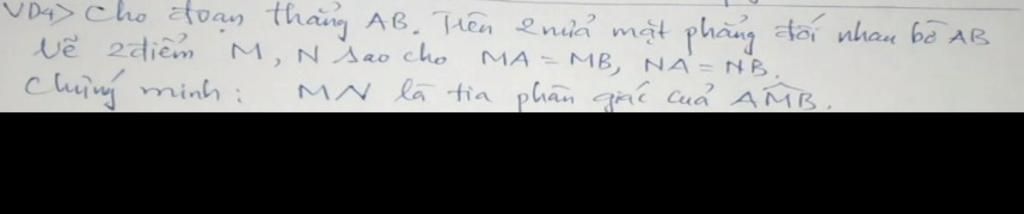 VD4> Cho đoạn thẳng AB. Trên 2 nửa mặt phẳng đối nhau bờ AB
Vẽ 2 điểm M, N sao cho MA = MB, NA = NB.
Chứng minh: MN là tia phân giác của \widehat{AMB}.